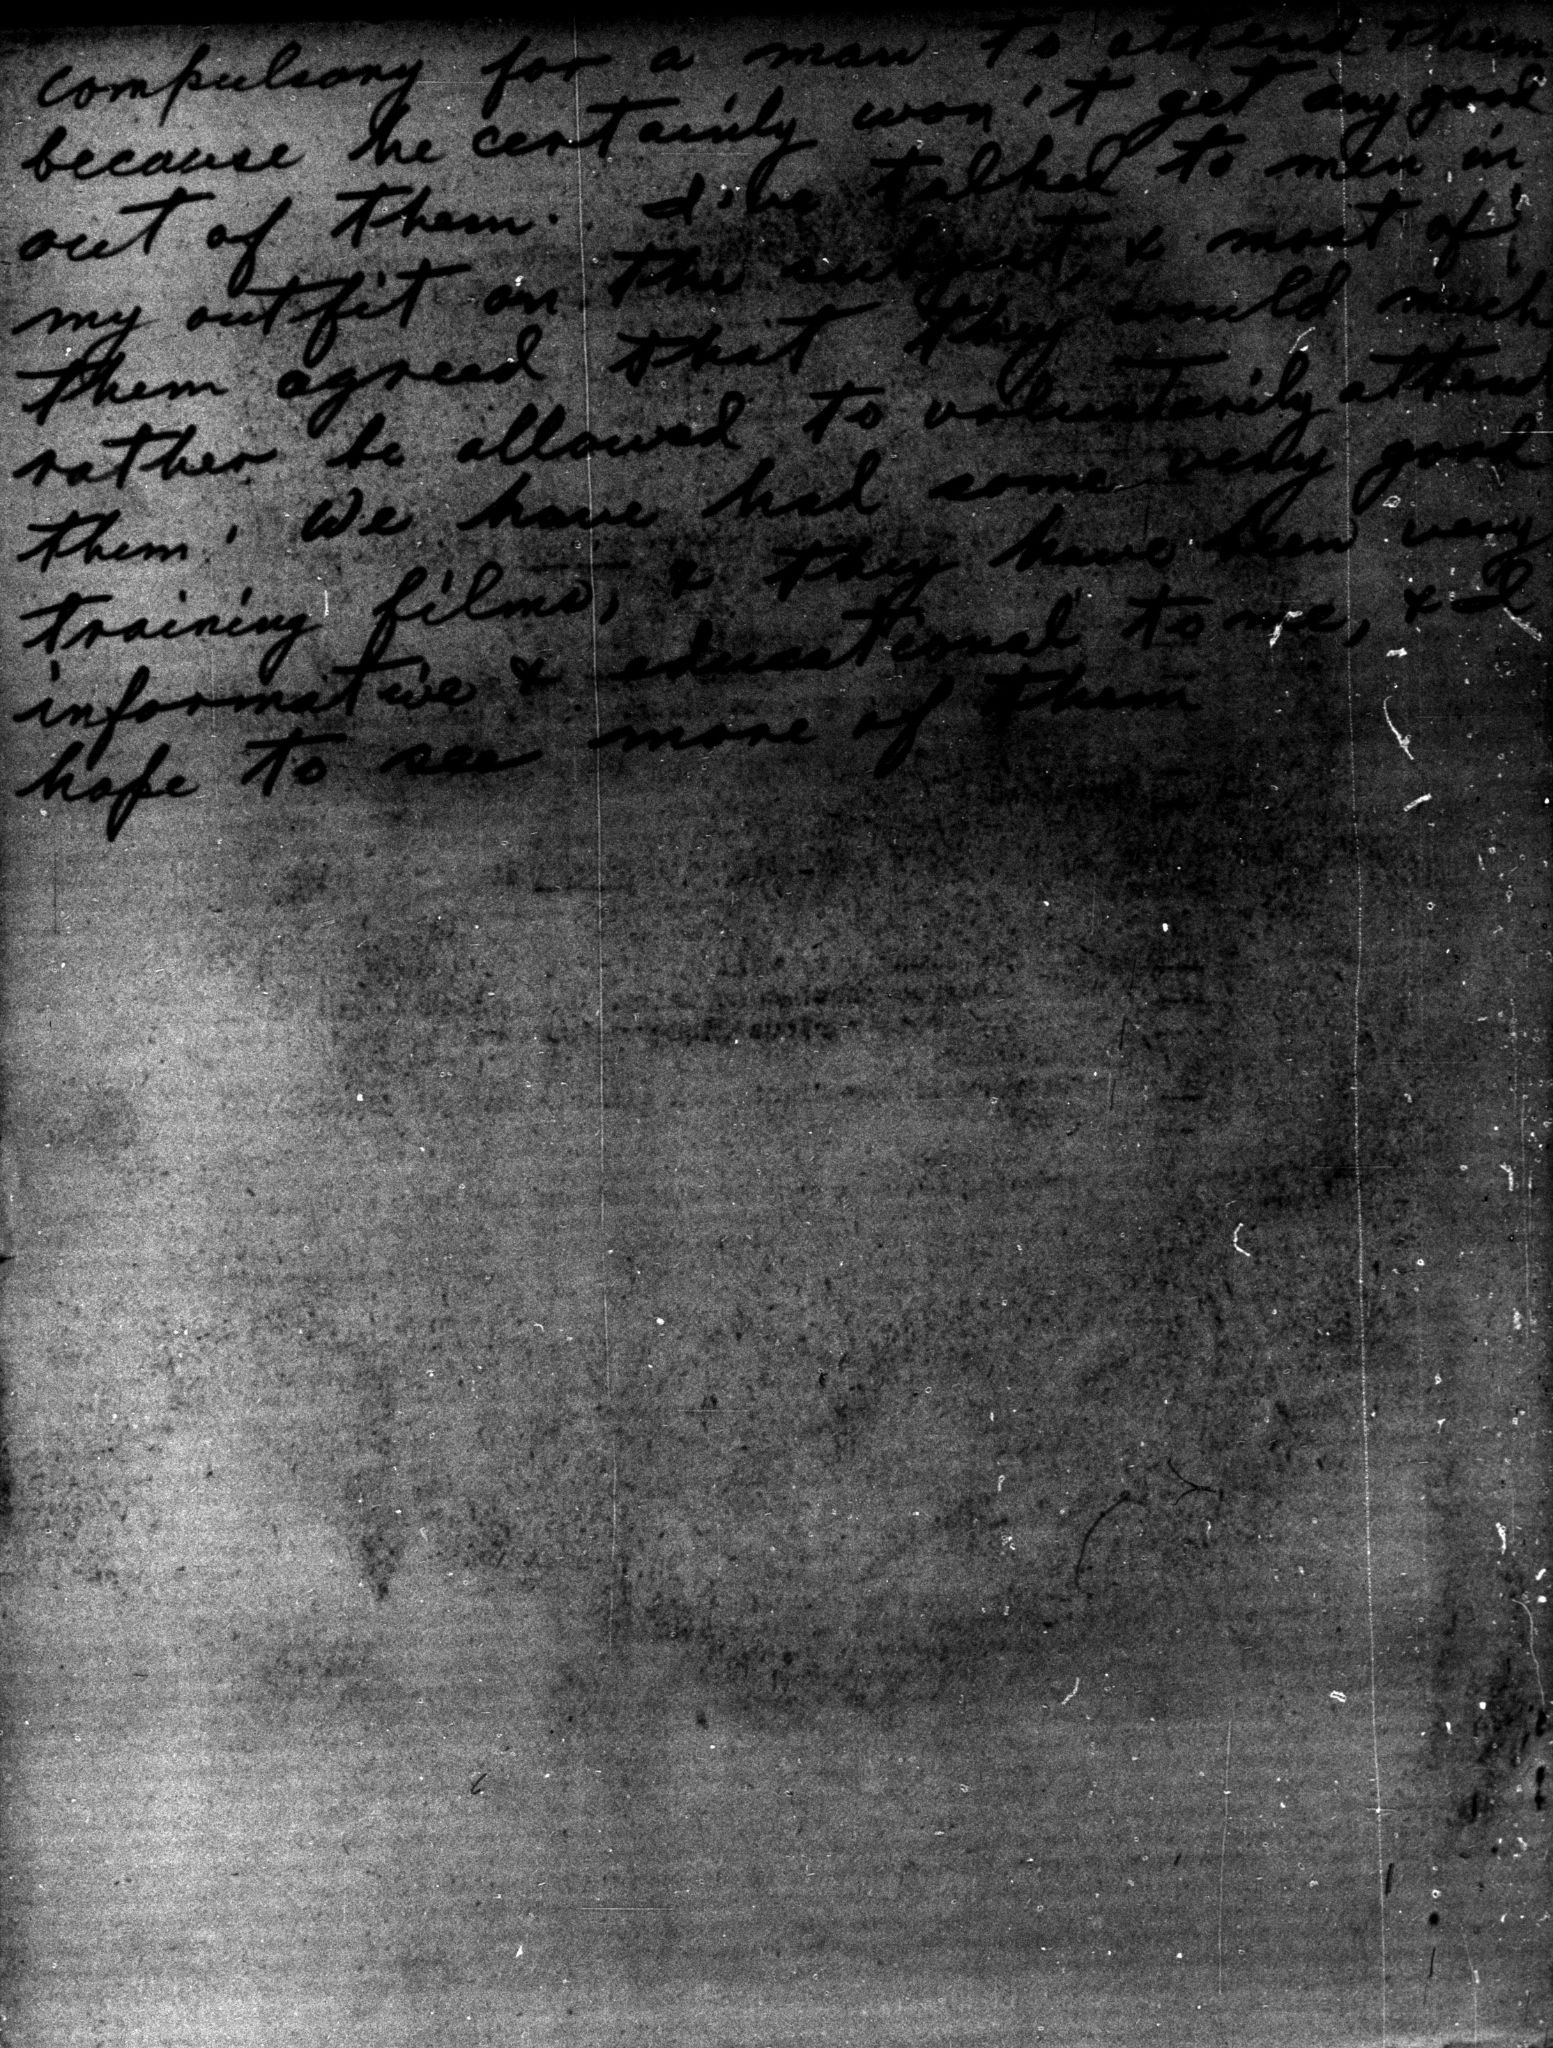 compulsory for a man to attend them
because he certainly won't get any good
out of them. I've talked to men in
my outfit on the subject, & most of
them agreed that they would much
rather be allowed to voluntarily attend
them. We have had some very good
training films, & they have been very
informative & educational to me, & I
hope to see more of them